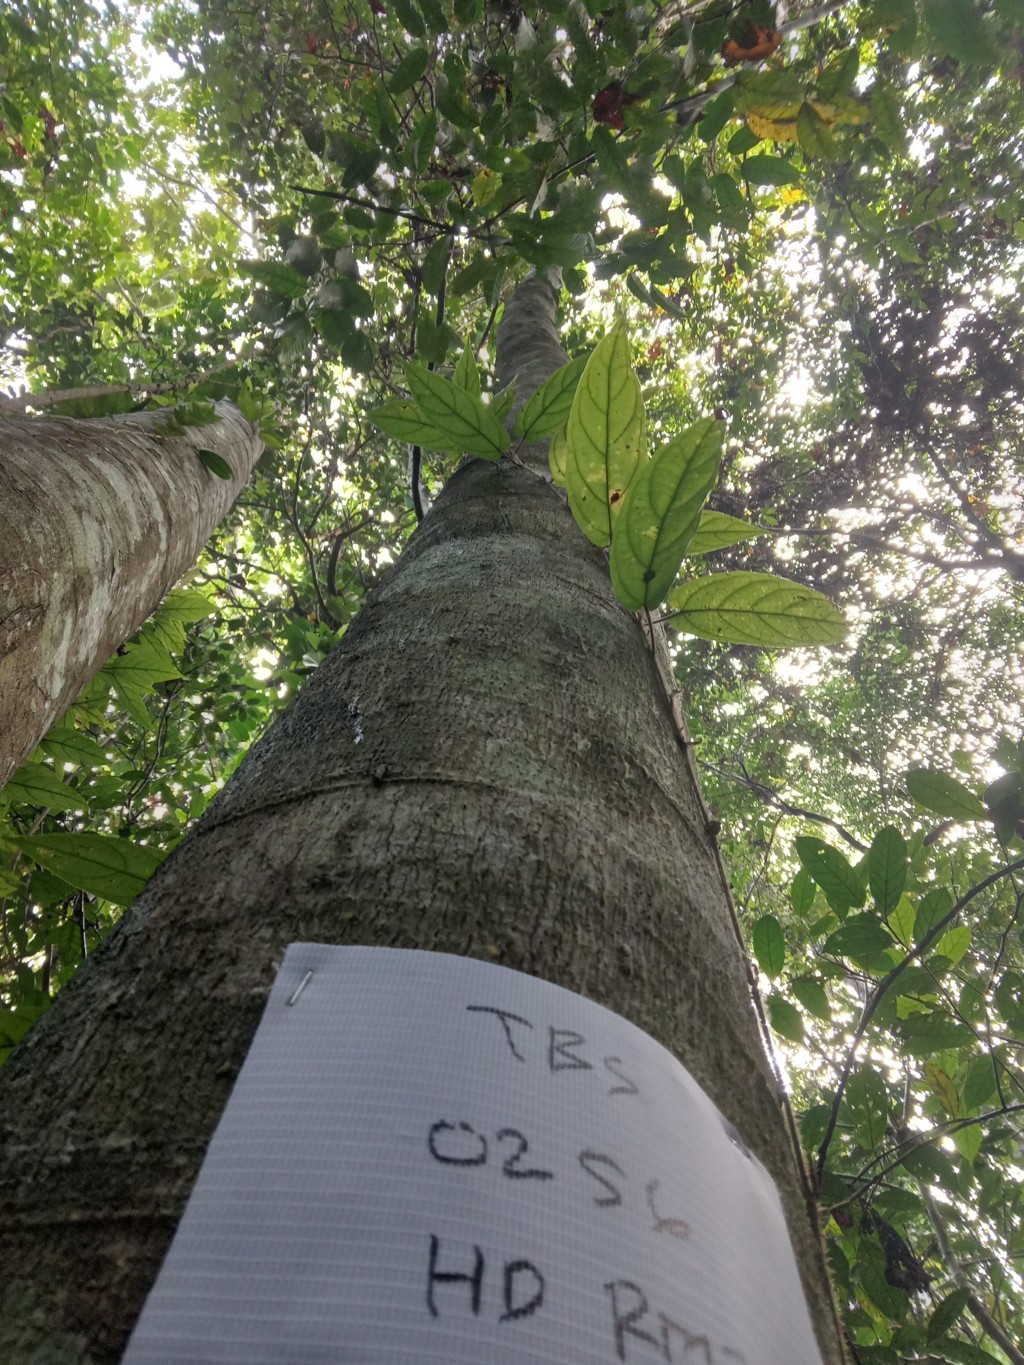 TBS
02 56
HD